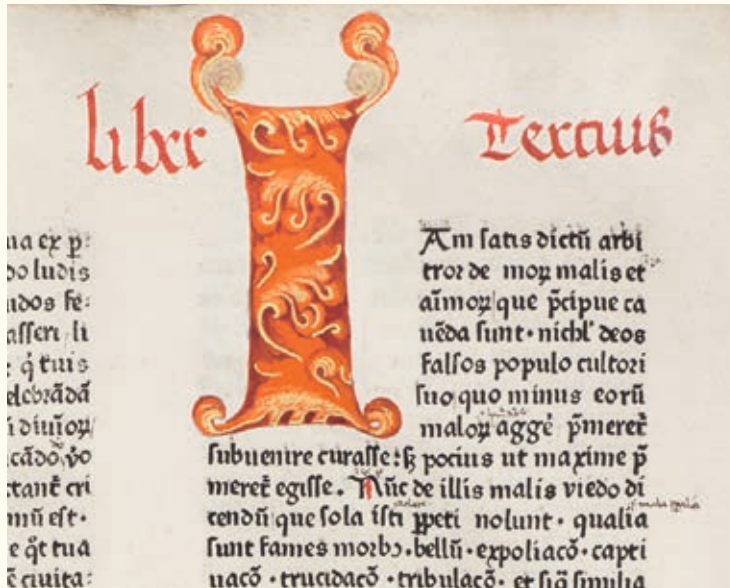 liber Tercius
na ex p̱:
do ludis
udos fe:
asseri, li
q̄ tuis
elebrādā
i diuīoꝝ
cādo, vo
ctant̄ cri
mū est·
e q̄t tua
ē ciuita:
IAm satis dictū arbi
tror de moꝝ malis et
aīmoꝝ que p̄cipue ca
uēda sunt· nichl' deos
falsos populo cultori
suo quo minus eorū
maloꝝ aggē p̄meret̄
subuenire curasse: sꝫ pocius ut maxime p̄
meret̄ egisse. Nūc de illis malis viedo di
cendū que sola isti ꝑpeti nolunt· qualia
sunt fames morbꝰ· bellū· expoliacō· capti
uacō· trucidacō· tribulacō· et siq̄ similia